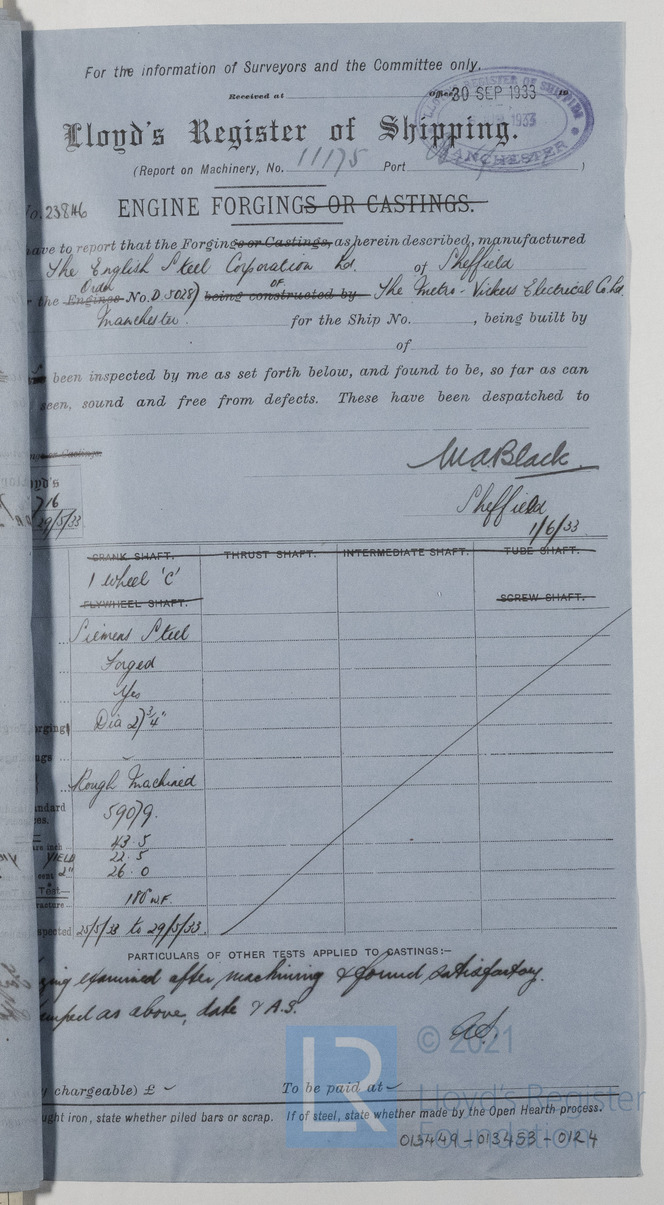 For the information of Surveyors and the Committee only.
Received at Office 20 SEP 1933 19
LLOYD'S REGISTER OF SHIPPING
1933
MANCHESTER
Lloyd's Register of Shipping.
(Report on Machinery, No. 11175 Port )
No. 23846 ENGINE FORGINGS OR CASTINGS.
have to report that the Forgings or Castings, as herein described, manufactured
The English Steel Corporation Ld. of Sheffield
Order OF
the Engines No. D 5028) being constructed by The Metro-Vickers Electrical Co. Ld.
Manchester. for the Ship No. , being built by
of
been inspected by me as set forth below, and found to be, so far as can
seen, sound and free from defects. These have been despatched to
or Castings.
W.A. Black.
Sheffield
1/6/33
oyd's
716
29/5/33
CRANK SHAFT. THRUST SHAFT. INTERMEDIATE SHAFT. TUBE SHAFT.
1 wheel 'C'
FLYWHEEL SHAFT. SCREW SHAFT.
Siemens Steel
Forged
Yes
orging) Dia 27 3/4"
ngs
Rough Machined
andard
es. 5907 9.
are inch 43.5
YIELD 22.5
cent 2" 26.0
Test
racture 180° W.F.
spected 25/5/33 to 29/5/33.
PARTICULARS OF OTHER TESTS APPLIED TO CASTINGS:—
ging examined after machining & found satisfactory.
amped as above, date & A.S.
A.S.
LR
© 2021
Lloyd's Register
Foundation
chargeable) £ To be paid at
ught iron, state whether piled bars or scrap. If of steel, state whether made by the Open Hearth process.
013449-013453-0124